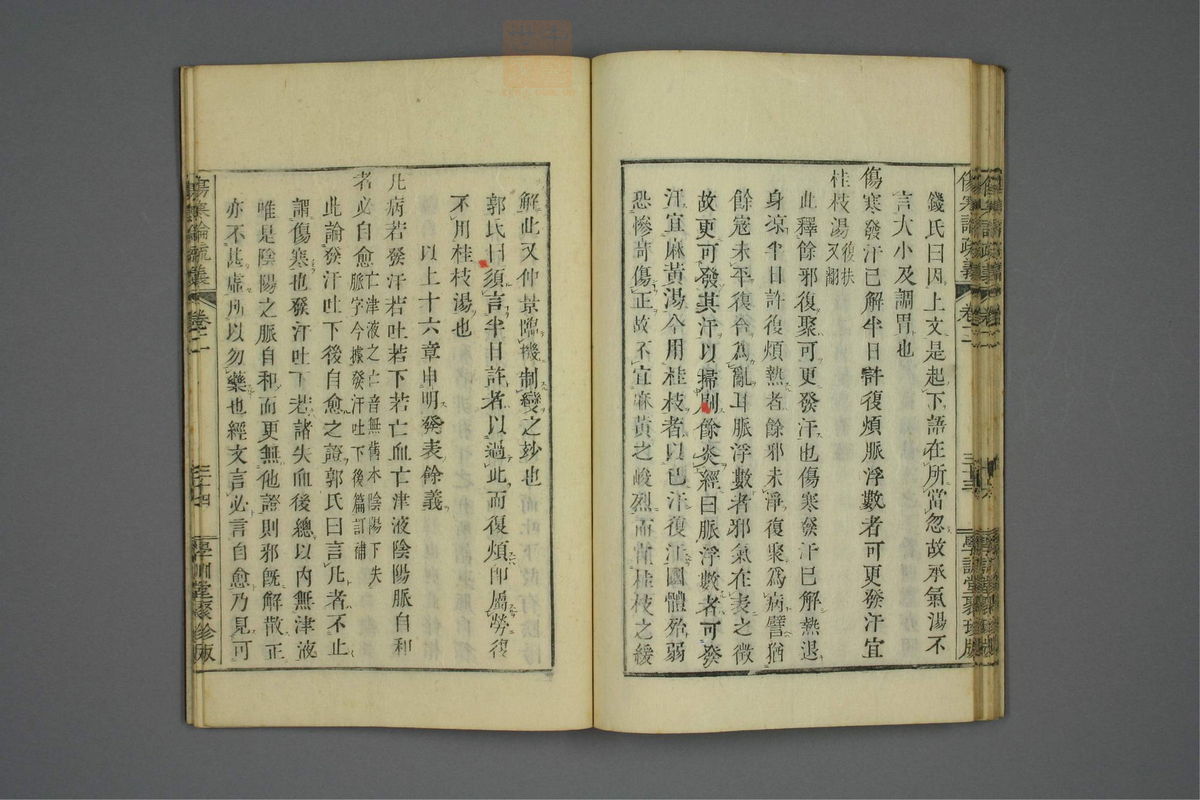 傷寒論疏義 卷二 三十三 學訓堂聚珍版
錢氏曰因上文是起下語在所當忽故承氣湯不
言大小及調胃也
傷寒發汗已解半日許復煩脈浮數者可更發汗宜
桂枝湯後扶又翻
此釋餘邪復聚可更發汗也傷寒發汗已解熱退
身凉半日許復煩熱者餘邪未淨復聚爲病譬猶
餘寇未平復合爲亂耳脈浮數者邪氣在表之徵
故更可發其汗以掃刷餘炎經曰脈浮數者可發
汗宜麻黃湯今用桂枝者以已汗復汗國體殆弱
恐慘苛傷正故不宜麻黃之峻烈而需桂枝之緩
解此又仲景臨機制變之妙也
郭氏曰須言半日許者以過此而復煩即屬勞復
不用桂枝湯也
以上十六章申明發表餘義
凡病若發汗若吐若下若亡血亡津液陰陽脈自和
者必自愈亡津液之亡音無舊本陰陽下失脈字今據發汗吐下後篇訂補
此論發汗吐下後自愈之證郭氏曰言凡者不止
謂傷寒也發汗吐下若諸失血後總以內無津液
唯是陰陽之脈自和而更無他證則邪旣解散正
亦不甚虛所以勿藥也經文言必言自愈乃見可
傷寒論疏義 卷二 三十四 學訓堂聚珍版